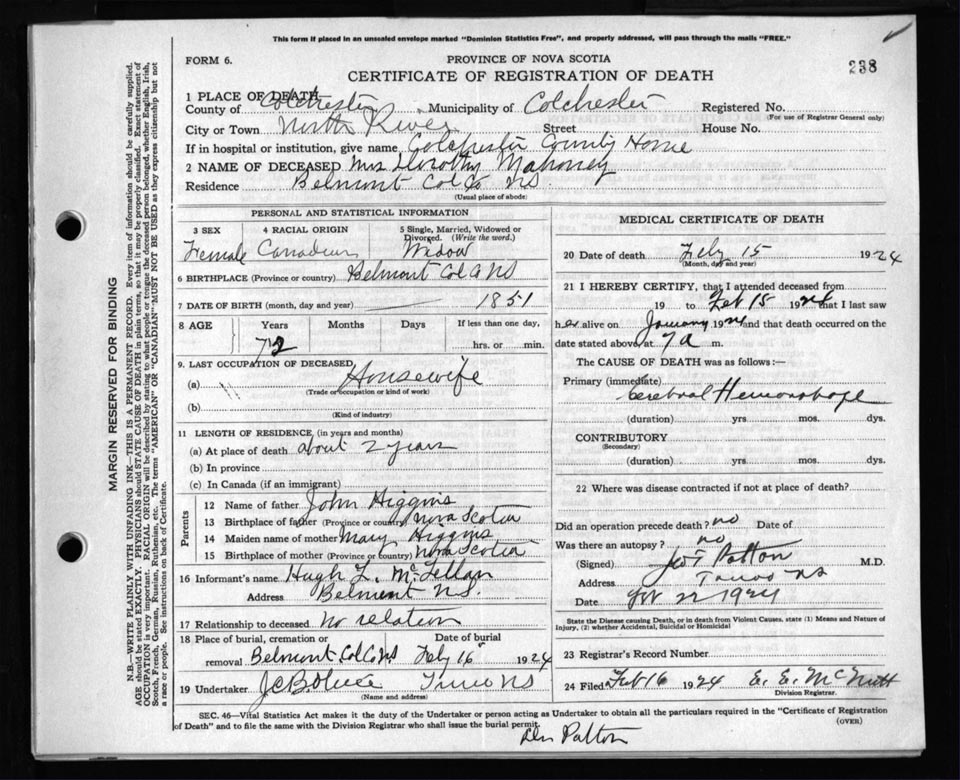 This form if placed in an unsealed envelope marked "Dominion Statistics Free", and properly addressed, will pass through the mails "FREE."
FORM 6.
PROVINCE OF NOVA SCOTIA
CERTIFICATE OF REGISTRATION OF DEATH
238
1 PLACE OF DEATH
County of Colchester Municipality of Colchester Registered No.
(For use of Registrar General only)
City or Town North River Street House No.
If in hospital or institution, give name Colchester County Home
2 NAME OF DECEASED Mrs Dorothy Mahoney
Residence Belmont Col Co NS.
(Usual place of abode)
PERSONAL AND STATISTICAL INFORMATION
3 SEX 4 RACIAL ORIGIN 5 Single, Married, Widowed or Divorced. (Write the word.)
Female Canadian Widow
6 BIRTHPLACE (Province or country) Belmont Col Co NS
7 DATE OF BIRTH (month, day and year) 1851
8 AGE Years Months Days If less than one day,
72 hrs. or min.
9. LAST OCCUPATION OF DECEASED
(a) Housewife
(Trade or occupation or kind of work)
(b)
(Kind of industry)
11 LENGTH OF RESIDENCE (in years and months)
(a) At place of death about 2 years
(b) In province
(c) In Canada (if an immigrant)
Parents
12 Name of father John Higgins
13 Birthplace of father (Province or country) Nova Scotia
14 Maiden name of mother Mary Higgins
15 Birthplace of mother (Province or country) Nova Scotia
16 Informant's name Hugh L. McLellan
Address Belmont N.S.
17 Relationship to deceased No relation
18 Place of burial, cremation or removal Belmont Col Co NS Date of burial Feby 16 1924
19 Undertaker Truro NS
(Name and address)
MEDICAL CERTIFICATE OF DEATH
20 Date of death Feby 15 1924
(Month, day and year)
21 I HEREBY CERTIFY, that I attended deceased from
19 to Feb 15 1924 that I last saw
her alive on January 1924 and that death occurred on
date stated above, at 7 a m.
The CAUSE OF DEATH was as follows:—
Primary (immediate)
Cerebral Hemorrhage
(duration) yrs. mos. dys.
CONTRIBUTORY
(Secondary)
(duration) yrs. mos. dys.
22 Where was disease contracted if not at place of death?
Did an operation precede death? no Date of
Was there an autopsy? no
(Signed) Patton M.D.
Address Truro NS
Date 22 1924
State the Disease causing Death, or in death from Violent Causes, state (1) Means and Nature of Injury, (2) whether Accidental, Suicidal or Homicidal
23 Registrar's Record Number
24 Filed Feb 16 1924 E. E. McNutt
Division Registrar.
SEC. 46—Vital Statistics Act makes it the duty of the Undertaker or person acting as Undertaker to obtain all the particulars required in the "Certificate of Registration of Death" and to file the same with the Division Registrar who shall issue the burial permit.
(OVER)
Patton
MARGIN RESERVED FOR BINDING
N.B.—WRITE PLAINLY WITH UNFADING INK—THIS IS A PERMANENT RECORD. Every item of information should be carefully supplied.
AGE should be stated EXACTLY. PHYSICIANS should STATE CAUSE OF DEATH in plain terms, so that it may be properly classified. Exact statement of
OCCUPATION is very important. RACIAL ORIGIN will be described by stating to what people or tongue the deceased person belonged, whether English, Irish,
Scotch, French, German, Russian, Ruthenian, etc. The terms "AMERICAN" or "CANADIAN" MUST NOT BE USED as they express citizenship but not
a race or people. See instructions on back of Certificate.